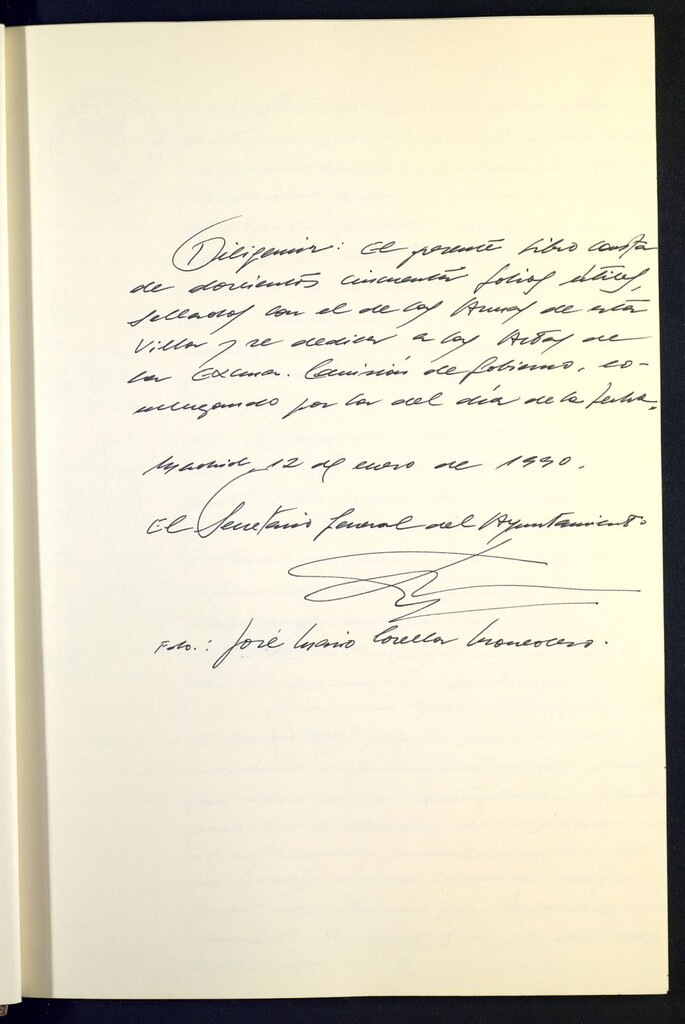 Diligencia: El presente libro consta
de doscientos cincuenta folios útiles,
sellados con el de las Armas de esta
Villa y se dedica a las Actas de
la Excma. Comisión de Gobierno, co-
menzando por la del día de la fecha.
Madrid, 12 de enero de 1990.
El Secretario General del Ayuntamiento
Fdo.: José Mario Corella Monedero.